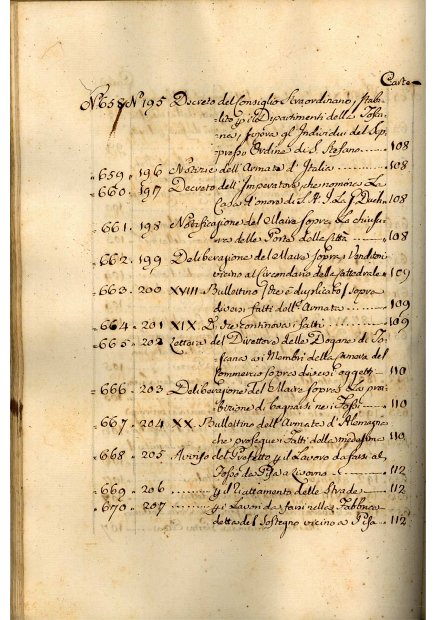 Carte
N.° 658 N.° 195 Decreto del Consiglio Straordinario, stabi-
lito p i Dipartimenti della Tosca-
na, sopra gl'Individui del Sop-
presso Ordine di S. Stefano 108
659 196 Notizie dell'Armata d'Italia 108
660 197 Decreto dell'Imperatore che nomina La
Casa d'onore di S. A. I. La G. Duch. 108
661 198 Notificazione del Maire sopra La chiusu-
ra delle Porte della Città 108
662 199 Deliberazione del Maire sopra i Venditori
vicino al Circondario della Cattedrale 109
663 200 XVIII Bullettino (che è duplicato) sopra
diversi fatti dell'Armata 109
664 201 XIX D.° che continova i fatti 109
665 202 Lettera del Direttore delle Dogane di To-
scana ai Membri della Camera del
Commercio sopra diversi oggetti 110
666 203 Deliberazione del Maire sopra La proi-
bizione di bagnarsi nei Fossi 110
667 204 XX. Bullettino dell'Armata d'Alemagna
che prosegue i Fatti della medesima 110
668 205 Avviso del Prefetto p il Lavoro da farsi al
Fosso da Pisa a Livorno 112
669 206 .......... p il Riattamento delle Strade 112
670 207 .......... p i Lavori da farsi nella Fabbrica
detta del Sostegno vicino a Pisa 112